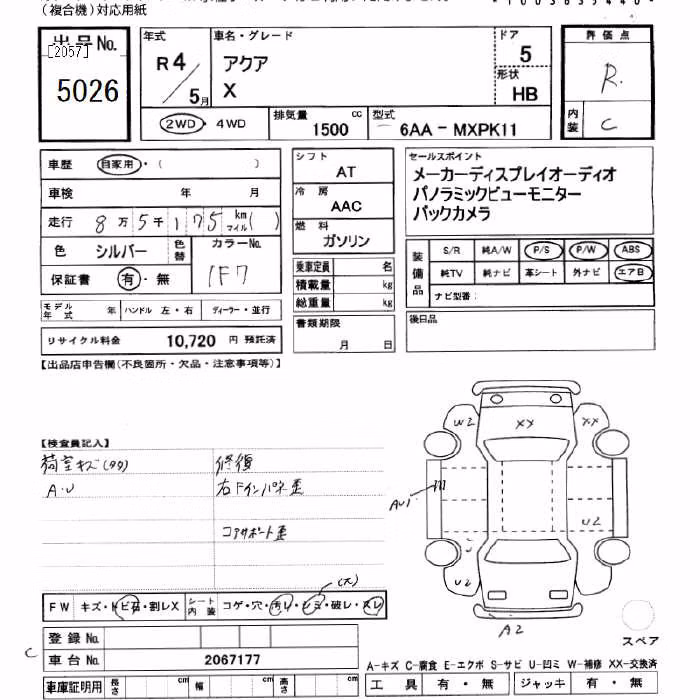 (複合機)対応用紙
出品No.
[2057]
5026
年式
R4/5月
車名・グレード
アクア
X
ドア
5
形状
HB
評価点
R
内装
C
2WD・4WD
排気量 1500 cc
型式 6AA－MXPK11
車歴 自家用・( )
車検 年 月
走行 8万5千175km マイル( )
色 シルバー 色替 カラーNo. 1F7
保証書 有・無
モデル年式 年 ハンドル 左・右 ディーラー・並行
リサイクル料金 10,720 円 預託済
シフト
AT
冷房
AAC
燃料
ガソリン
乗車定員 名
積載量 kg
総重量 kg
書類期限
月 日
セールスポイント
メーカーディスプレイオーディオ
パノラミックビューモニター
バックカメラ
装備品
S/R 純A/W P/S P/W ABS
純TV 純ナビ 革シート 外ナビ エアB
ナビ型番:
後日品
【出品店申告欄(不良箇所・欠品・注意事項等)】
【検査員記入】
荷室キズ(タタ) 修復
A.U 右Fインパネ歪
コアサポート歪
W2 XX XX
AU1
U2
U
U2
A2
スペア
(大)
FW キズ・トビ石・割レX シート内装 コゲ・穴・汚レ・シミ・破レ・スレ
登録No.
C
車台No. 2067177
車庫証明用 長さ cm 幅 cm 高さ cm
A-キズ C-腐食 E-エクボ S-サビ U-凹ミ W-補修 XX-交換済
工具 有・無 ジャッキ 有・無